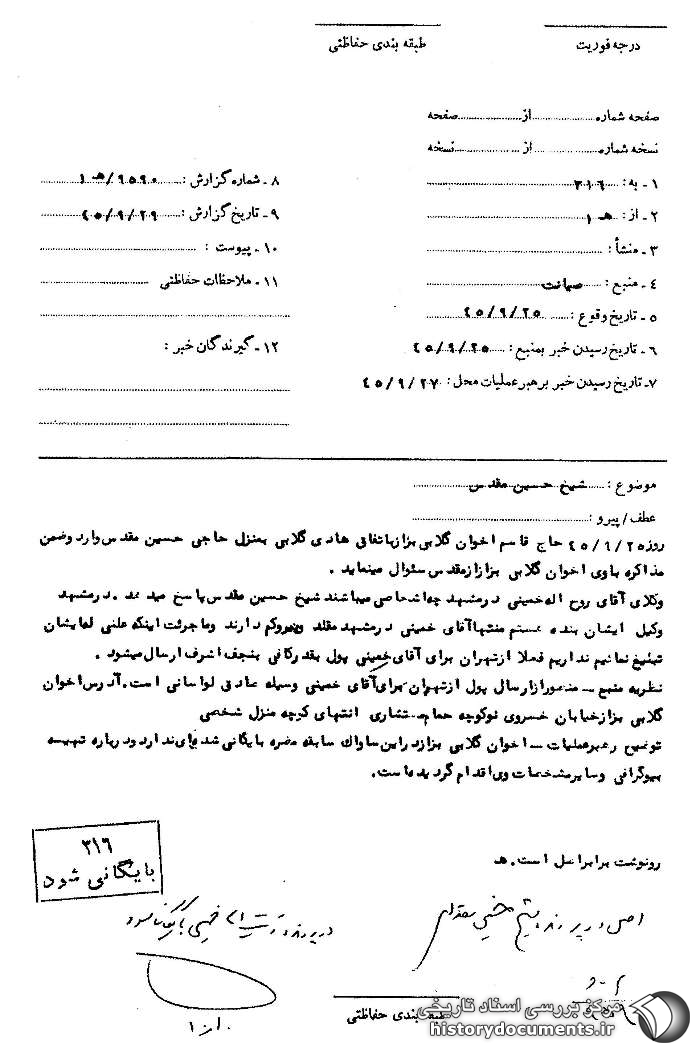 درجه فوریت
طبقه بندی حفاظتی
صفحه شماره از صفحه
نسخه شماره از نسخه
۱ـ به : ۳۱۶
۲ـ از : ۱ هـ
۳ـ منشأ :
۴ـ منبع : صیانت
۵ـ تاریخ وقوع : ۴۵/۹/۲۵
۶ـ تاریخ رسیدن خبر بمنبع : ۴۵/۹/۲۵
۷ـ تاریخ رسیدن خبر برهبر عملیات محل : ۴۵/۹/۲۷
۸ـ شماره گزارش : ۹۵۹۰/ ۱ هـ
۹ـ تاریخ گزارش : ۴۵/۹/۲۹
۱۰ـ پیوست :
۱۱ـ ملاحظات حفاظتی
۱۲ـ گیرندگان خبر :
موضوع : شیخ حسین مقدس
عطف/ پیرو :
روز ۴۵/۹/۲۵ حاج قاسم اخوان گلابی بزاز باتفاق هادی گلابی بمنزل حاجی حسین مقدس وارد وضمن
مذاکره باوی اخوان گلابی بزاز از مقدس سئوال مینماید .
وکلای آقای روح اله خمینی در مشهد چه اشخاصی میباشند شیخ حسین مقدس پاسخ میدهد . در مشهد
وکیل ایشان بنده هستم منتها آقای خمینی در مشهد مقلد وپیرو کم دارند وما جرئت اینکه علنی لهایشان
تبلیغ نمائیم نداریم فعلا از تهران برای آقای خمینی پول بقدر کافی بنجف اشرف ارسال میشود .
نظریه منبع ـ منظور از ارسال پول از تهران برای آقای خمینی وسیله صادق لواسانی است. آدرس اخوان
گلابی بزاز خیابان خسروی نو کوچه حمام مستشاری انتهای کوچه منزل شخصی
توضیح رهبر عملیات ـ اخوان گلابی بزاز در این ساواک سابقه مضره بایگانی شده ای ندارد ودرباره تهیه
بیوگرافی وسایر مشخصات وی اقدام گردیده است.
رونوشت برابر اصل است. هـ
۳۱۶
بایگانی شود
اصل در پرونده شیخ حسین مقدس
در پرونده خمینی بایگانی شود
طبقه بندی حفاظتی
مرکز بررسی اسناد تاریخی
historydocuments.ir